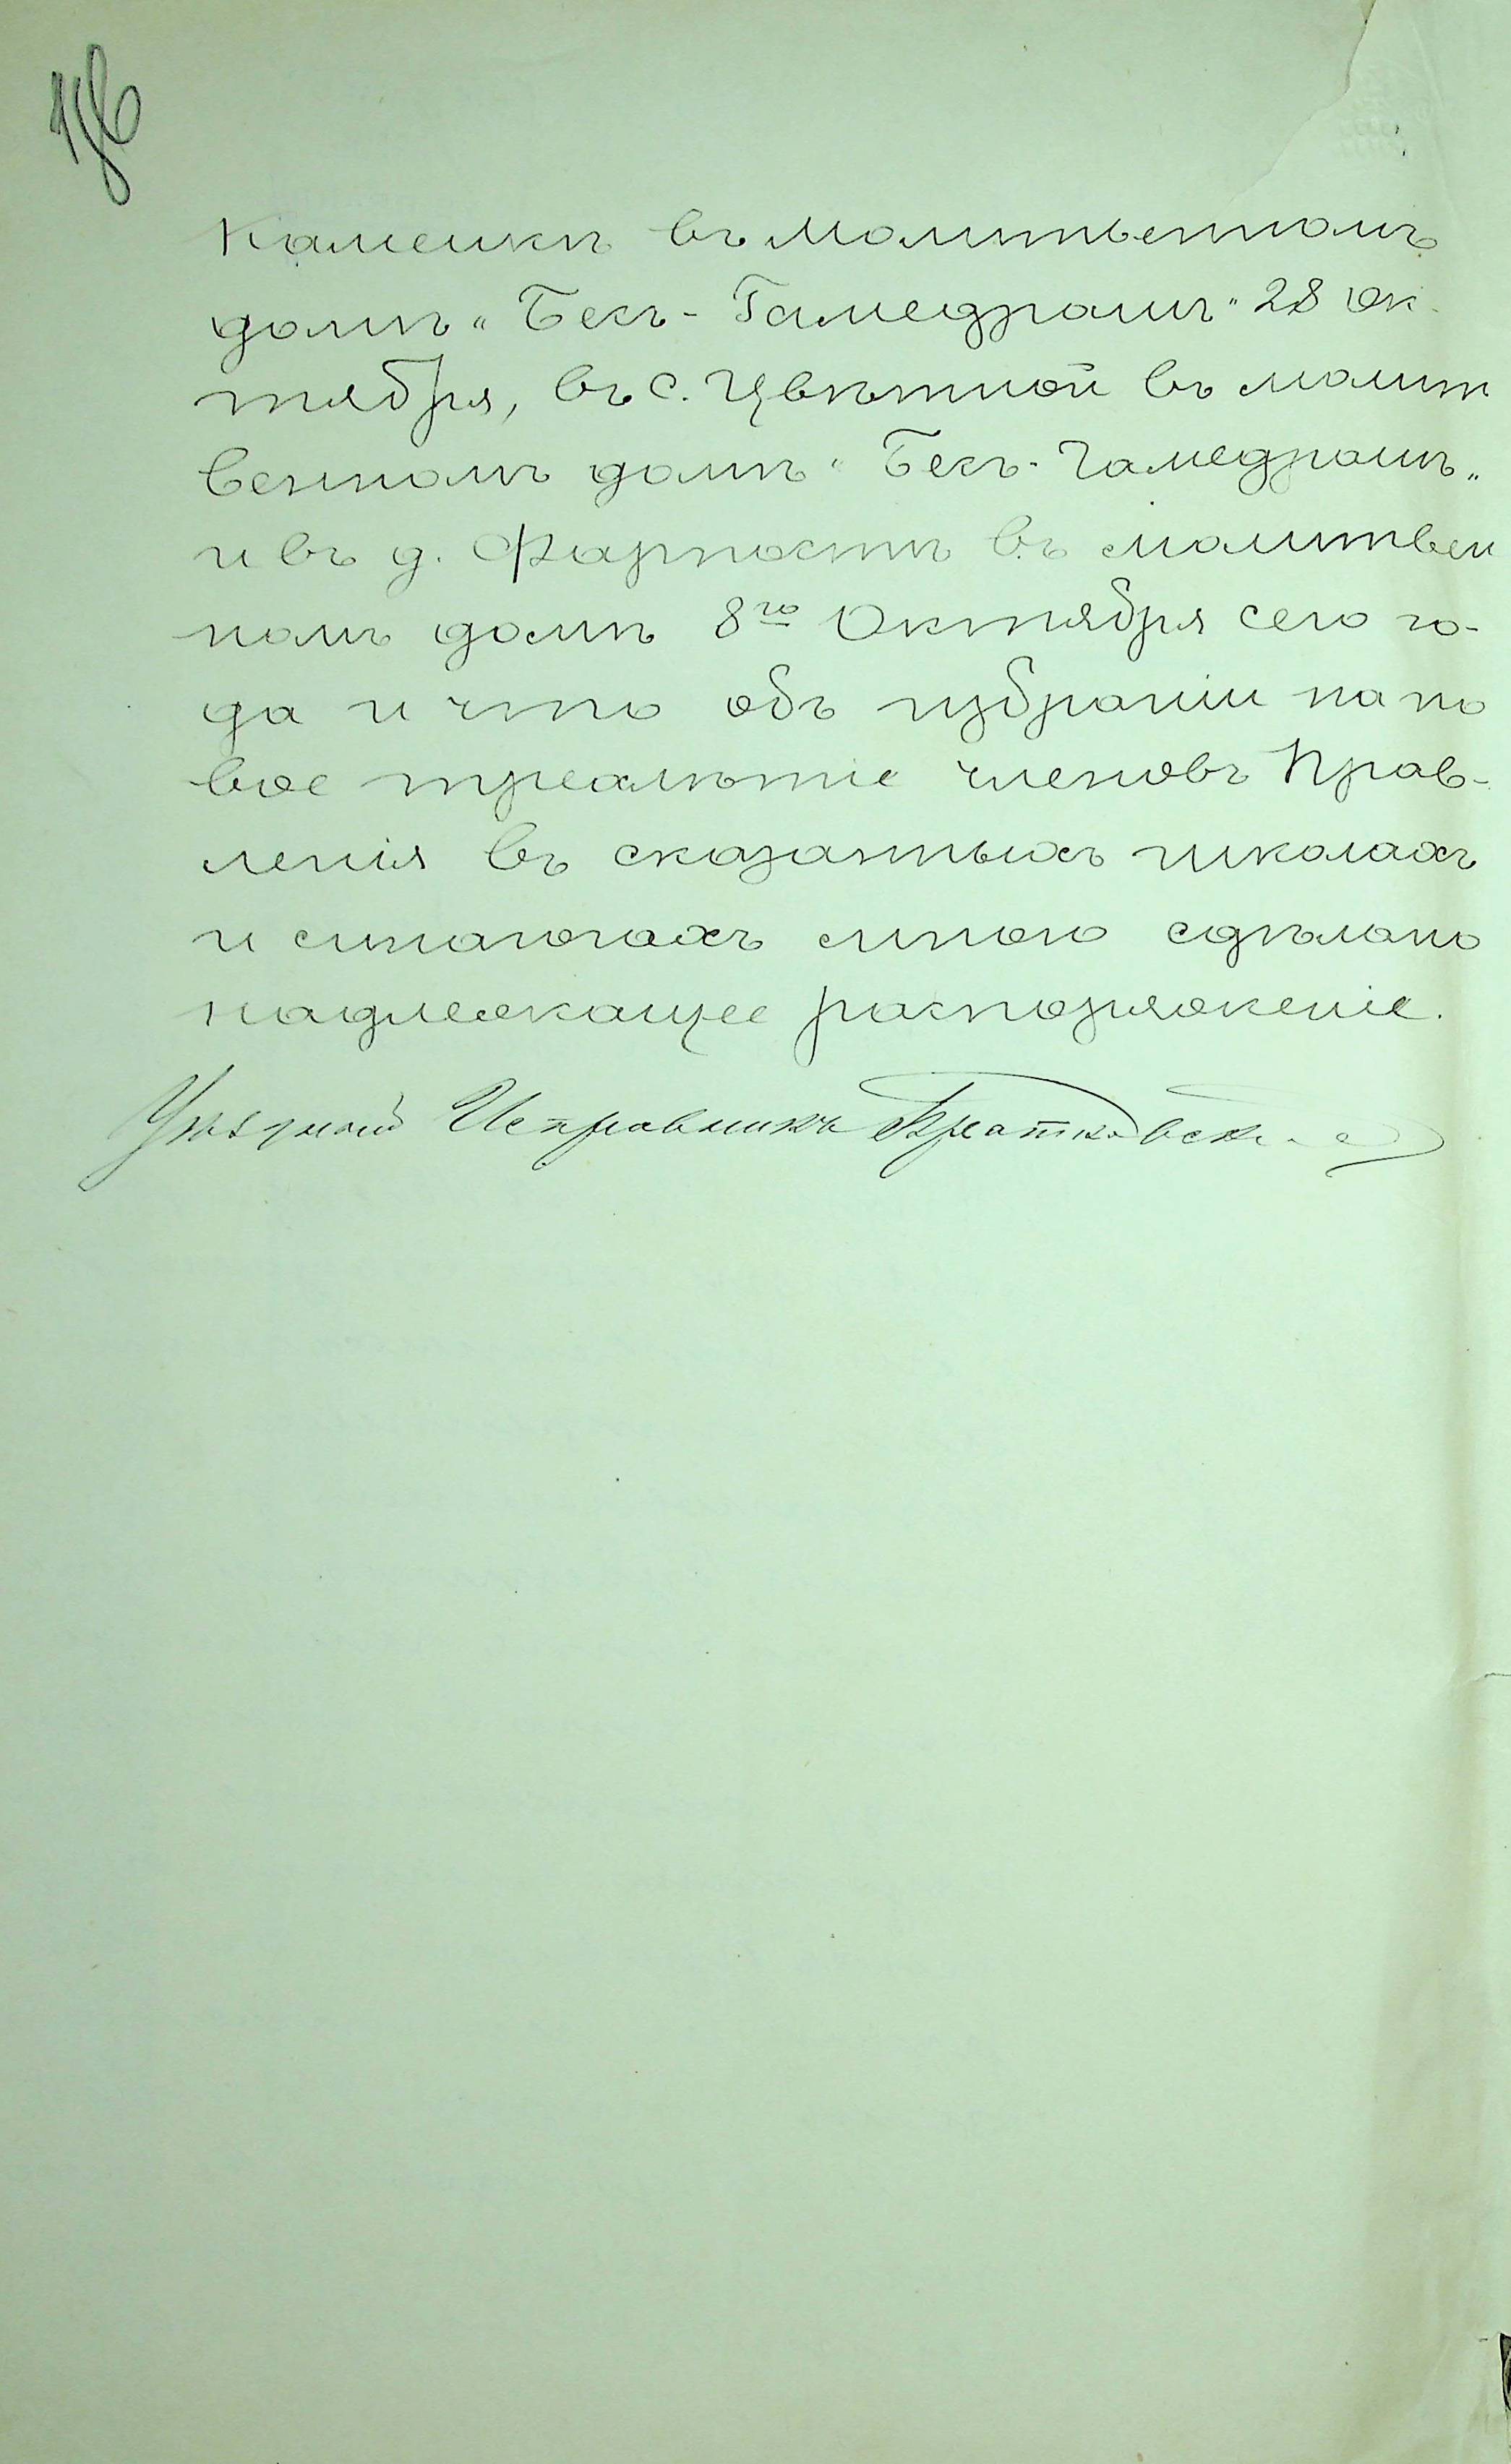 Каменкѣ въ Молитвенномъ
домѣ „Бесъ-Гамедрашъ" 28 Ок-
тября, въ с. Цвѣтной въ молит
венномъ домѣ „Бесъ-Гамедрашъ"
и въ д. Фарпостѣ въ молитвен
номъ домѣ 8го Октября сего го-
да и что объ избраніи на но
вое трехлѣтіе членовъ Прав-
ленія въ сказанныхъ школахъ
и синагогахъ мною сдѣлано
надлежащее распоряженіе.
Уѣздный Исправникъ